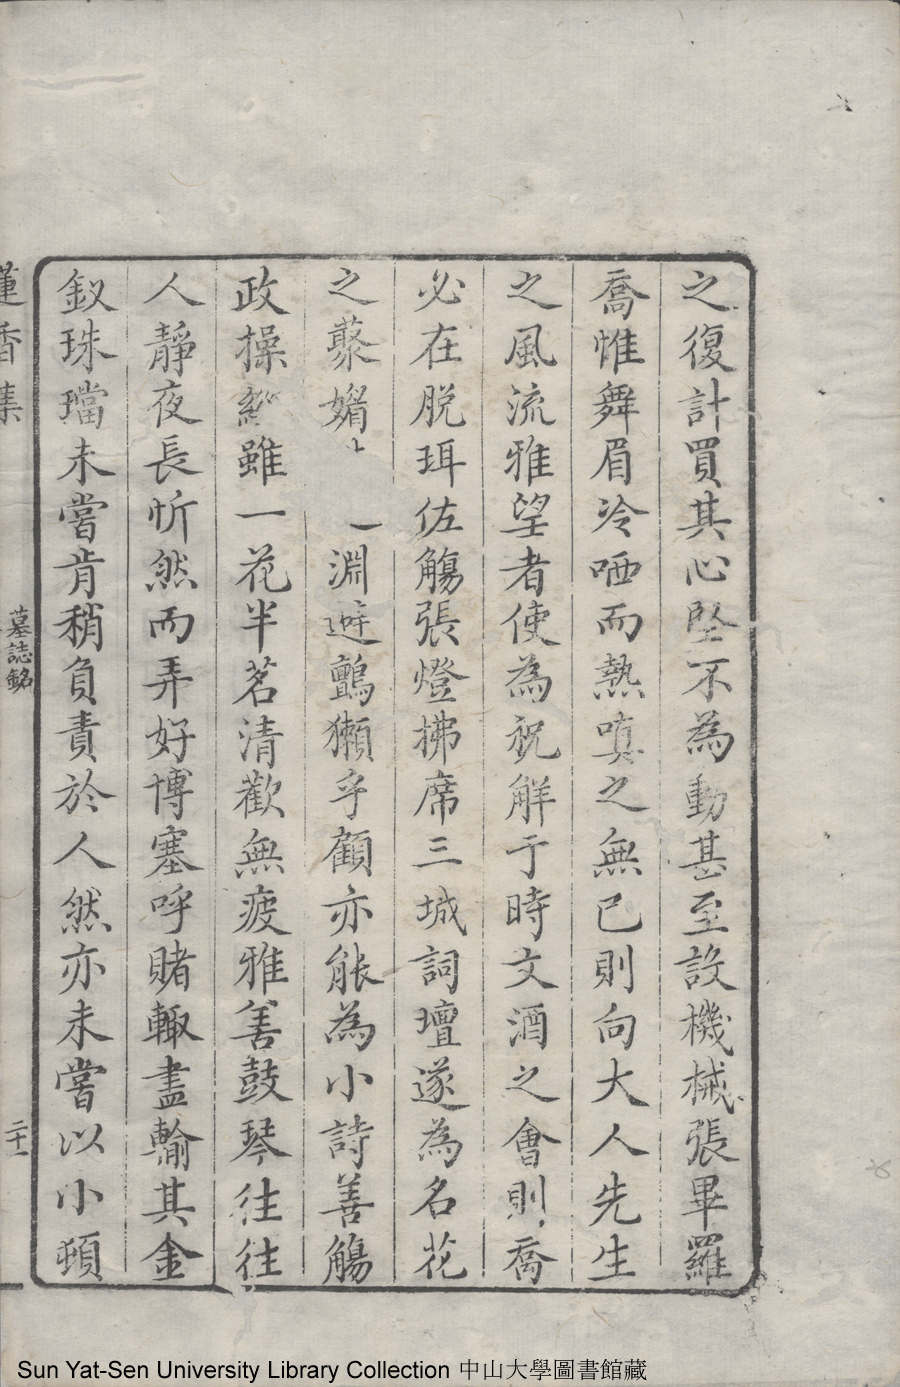 之復計買其心堅不為動甚至設機械張畢羅
喬惟舞眉冷哂而熱嗔之無已則向大人先生
之風流雅望者使為祝觧于時文酒之會則喬
必在脱珥佐觴張燈拂席三城詞壇遂為名花
之藂媚一淵避鸇獺乎顧亦能為小詩善觴
政操縵雖一花半茗清歡無疲雅善鼓琴往往
人靜夜長忻然而弄好博塞呼賭輙盡輸其金
釵珠璫未嘗肯稍負責於人然亦未嘗以小頓
蓮香集
墓誌銘
二十一
Sun Yat-Sen University Library Collection 中山大學圖書館藏